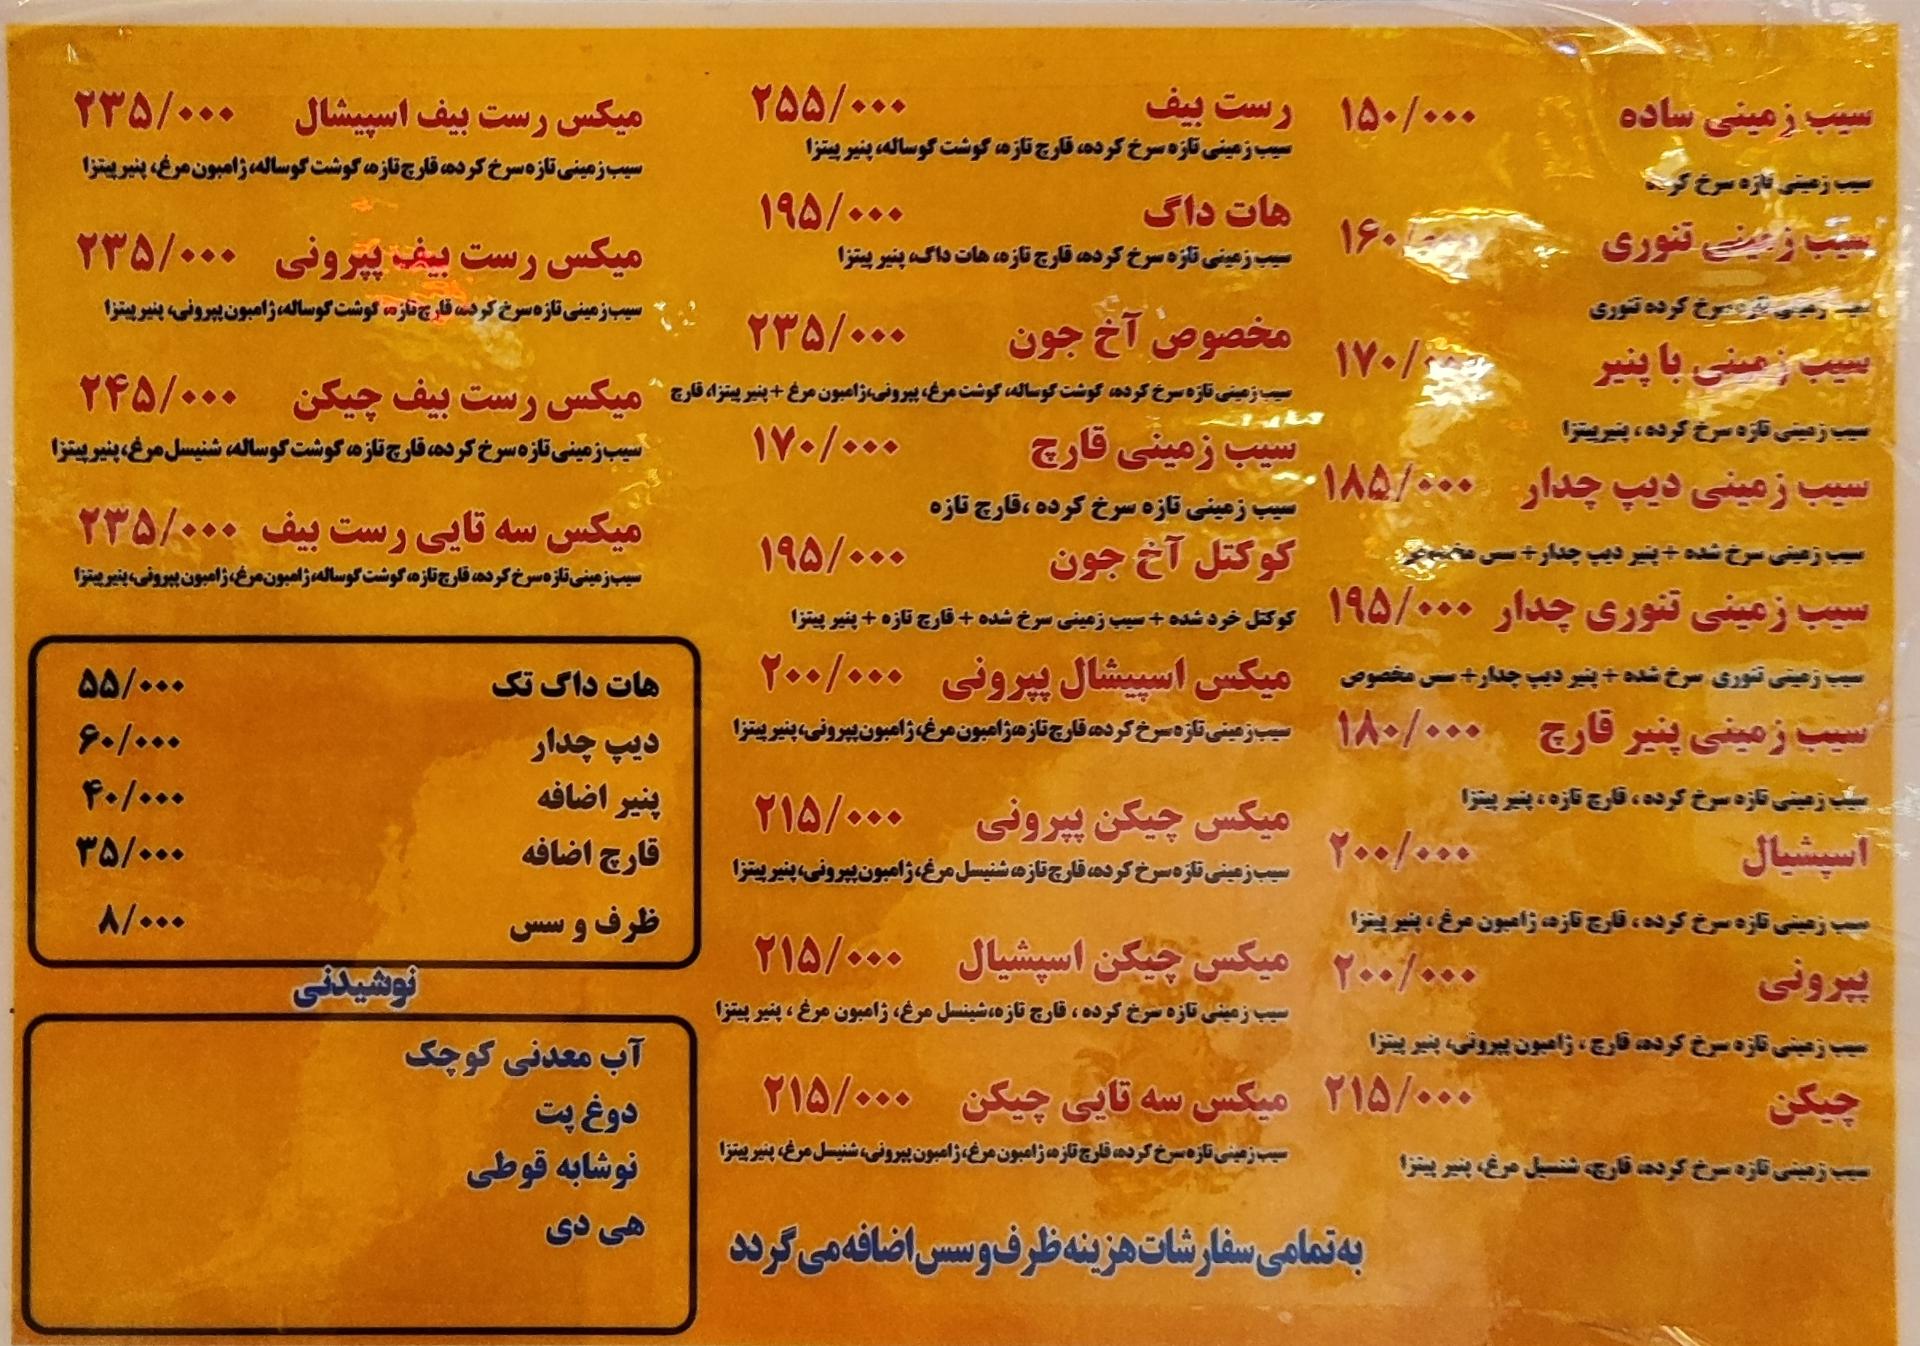 سیب زمینی ساده ۱۵۰/۰۰۰
سیب زمینی تازه سرخ کرده
سیب زمینی تنوری ۱۶۰/۰۰۰
سیب زمینی تازه سرخ کرده تنوری
سیب زمینی با پنیر ۱۷۰/۰۰۰
سیب زمینی تازه سرخ کرده ، پنیرپیتزا
سیب زمینی دیپ چدار ۱۸۵/۰۰۰
سیب زمینی سرخ شده + پنیر دیپ چدار+ سس مخصوص
سیب زمینی تنوری چدار ۱۹۵/۰۰۰
سیب زمینی تنوری سرخ شده + پنیر دیپ چدار+ سس مخصوص
سیب زمینی پنیر قارچ ۱۸۰/۰۰۰
سیب زمینی تازه سرخ کرده ، قارچ تازه ، پنیر پیتزا
اسپشیال ۲۰۰/۰۰۰
سیب زمینی تازه سرخ کرده ، قارچ تازه، ژامبون مرغ ، پنیر پیتزا
پپرونی ۲۰۰/۰۰۰
سیب زمینی تازه سرخ کرده، قارچ ، ژامبون پپرونی، پنیر پیتزا
چیکن ۲۱۵/۰۰۰
سیب زمینی تازه سرخ کرده، قارچ، شنسیل مرغ، پنیر پیتزا
رست بیف ۲۵۵/۰۰۰
سیب زمینی تازه سرخ کرده، قارچ تازه، گوشت گوساله، پنیر پیتزا
هات داگ ۱۹۵/۰۰۰
سیب زمینی تازه سرخ کرده، قارچ تازه، هات داگ، پنیر پیتزا
مخصوص آخ جون ۲۳۵/۰۰۰
سیب زمینی تازه سرخ کرده، گوشت گوساله، گوشت مرغ، پپرونی،ژامبون مرغ + پنیر پیتزا، قارچ
سیب زمینی قارچ ۱۷۰/۰۰۰
سیب زمینی تازه سرخ کرده ،قارچ تازه
کوکتل آخ جون ۱۹۵/۰۰۰
کوکتل خرد شده + سیب زمینی سرخ شده + قارچ تازه + پنیر پیتزا
میکس اسپیشال پپرونی ۲۰۰/۰۰۰
سیب زمینی تازه سرخ کرده، قارچ تازه، ژامبون مرغ، ژامبون پپرونی، پنیر پیتزا
میکس چیکن پپرونی ۲۱۵/۰۰۰
سیب زمینی تازه سرخ کرده، قارچ تازه، شنیسل مرغ، ژامبون پپرونی، پنیر پیتزا
میکس چیکن اسپشیال ۲۱۵/۰۰۰
سیب زمینی تازه سرخ کرده ، قارچ تازه،شینسل مرغ، ژامبون مرغ ، پنیر پیتزا
میکس سه تایی چیکن ۲۱۵/۰۰۰
سیب زمینی تازه سرخ کرده، قارچ تازه، ژامبون مرغ، ژامبون پپرونی، شنیسل مرغ، پنیر پیتزا
میکس رست بیف اسپیشال ۲۳۵/۰۰۰
سیب زمینی تازه سرخ کرده، قارچ تازه، گوشت گوساله، ژامبون مرغ، پنیر پیتزا
میکس رست بیف پپرونی ۲۳۵/۰۰۰
سیب زمینی تازه سرخ کرده، قارچ تازه، گوشت گوساله، ژامبون پپرونی، پنیر پیتزا
میکس رست بیف چیکن ۲۴۵/۰۰۰
سیب زمینی تازه سرخ کرده، قارچ تازه، گوشت گوساله، شنیسل مرغ، پنیر پیتزا
میکس سه تایی رست بیف ۲۳۵/۰۰۰
سیب زمینی تازه سرخ کرده، قارچ تازه، گوشت گوساله، ژامبون مرغ، ژامبون پپرونی، پنیر پیتزا
هات داگ تک ۵۵/۰۰۰
دیپ چدار ۶۰/۰۰۰
پنیر اضافه ۴۰/۰۰۰
قارچ اضافه ۳۵/۰۰۰
ظرف و سس ۸/۰۰۰
نوشیدنی
آب معدنی کوچک
دوغ پت
نوشابه قوطی
هی دی
به تمامی سفارشات هزینه ظرف و سس اضافه می گردد